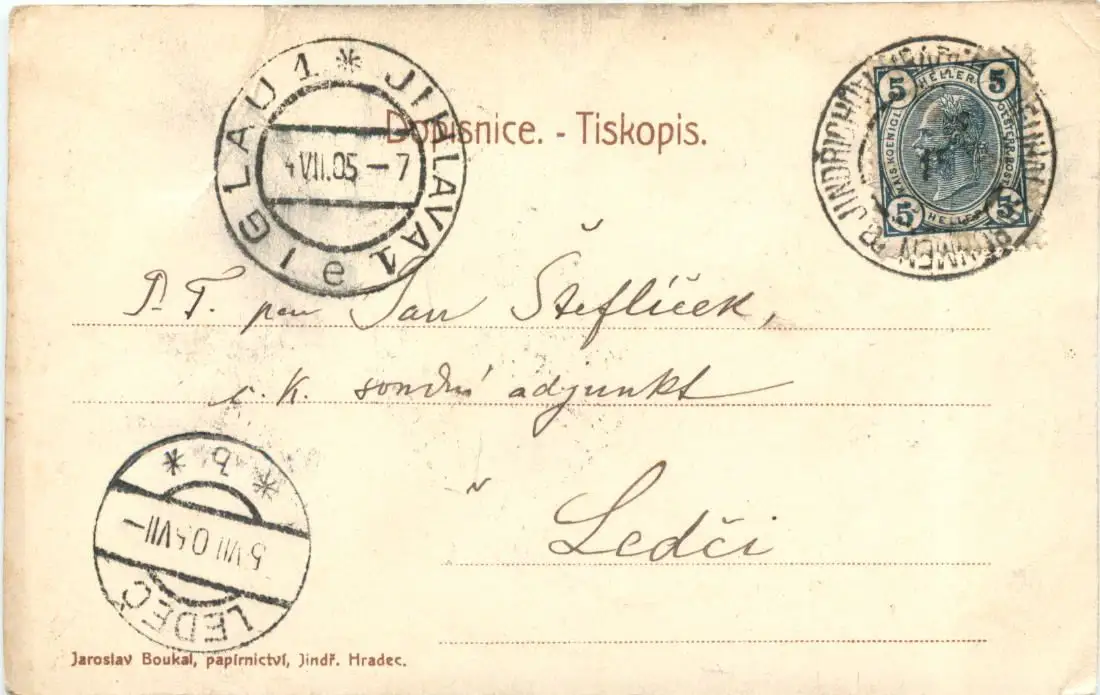 Dopisnice. - Tiskopis.
IGLAU 1 * JIHLAVA 1
4 VII.05 – 7
e
5 HELLER 5
KAIS.KOENIGL. OESTERR.POST
5 HELLER 5
P. T. pan Jan Šteflíček,
c. K. soudní adjunkt
v
Ledči
* b *
5 VII 05 VII –
LEDEČ
Jaroslav Boukal, papírnictví, Jindř. Hradec.